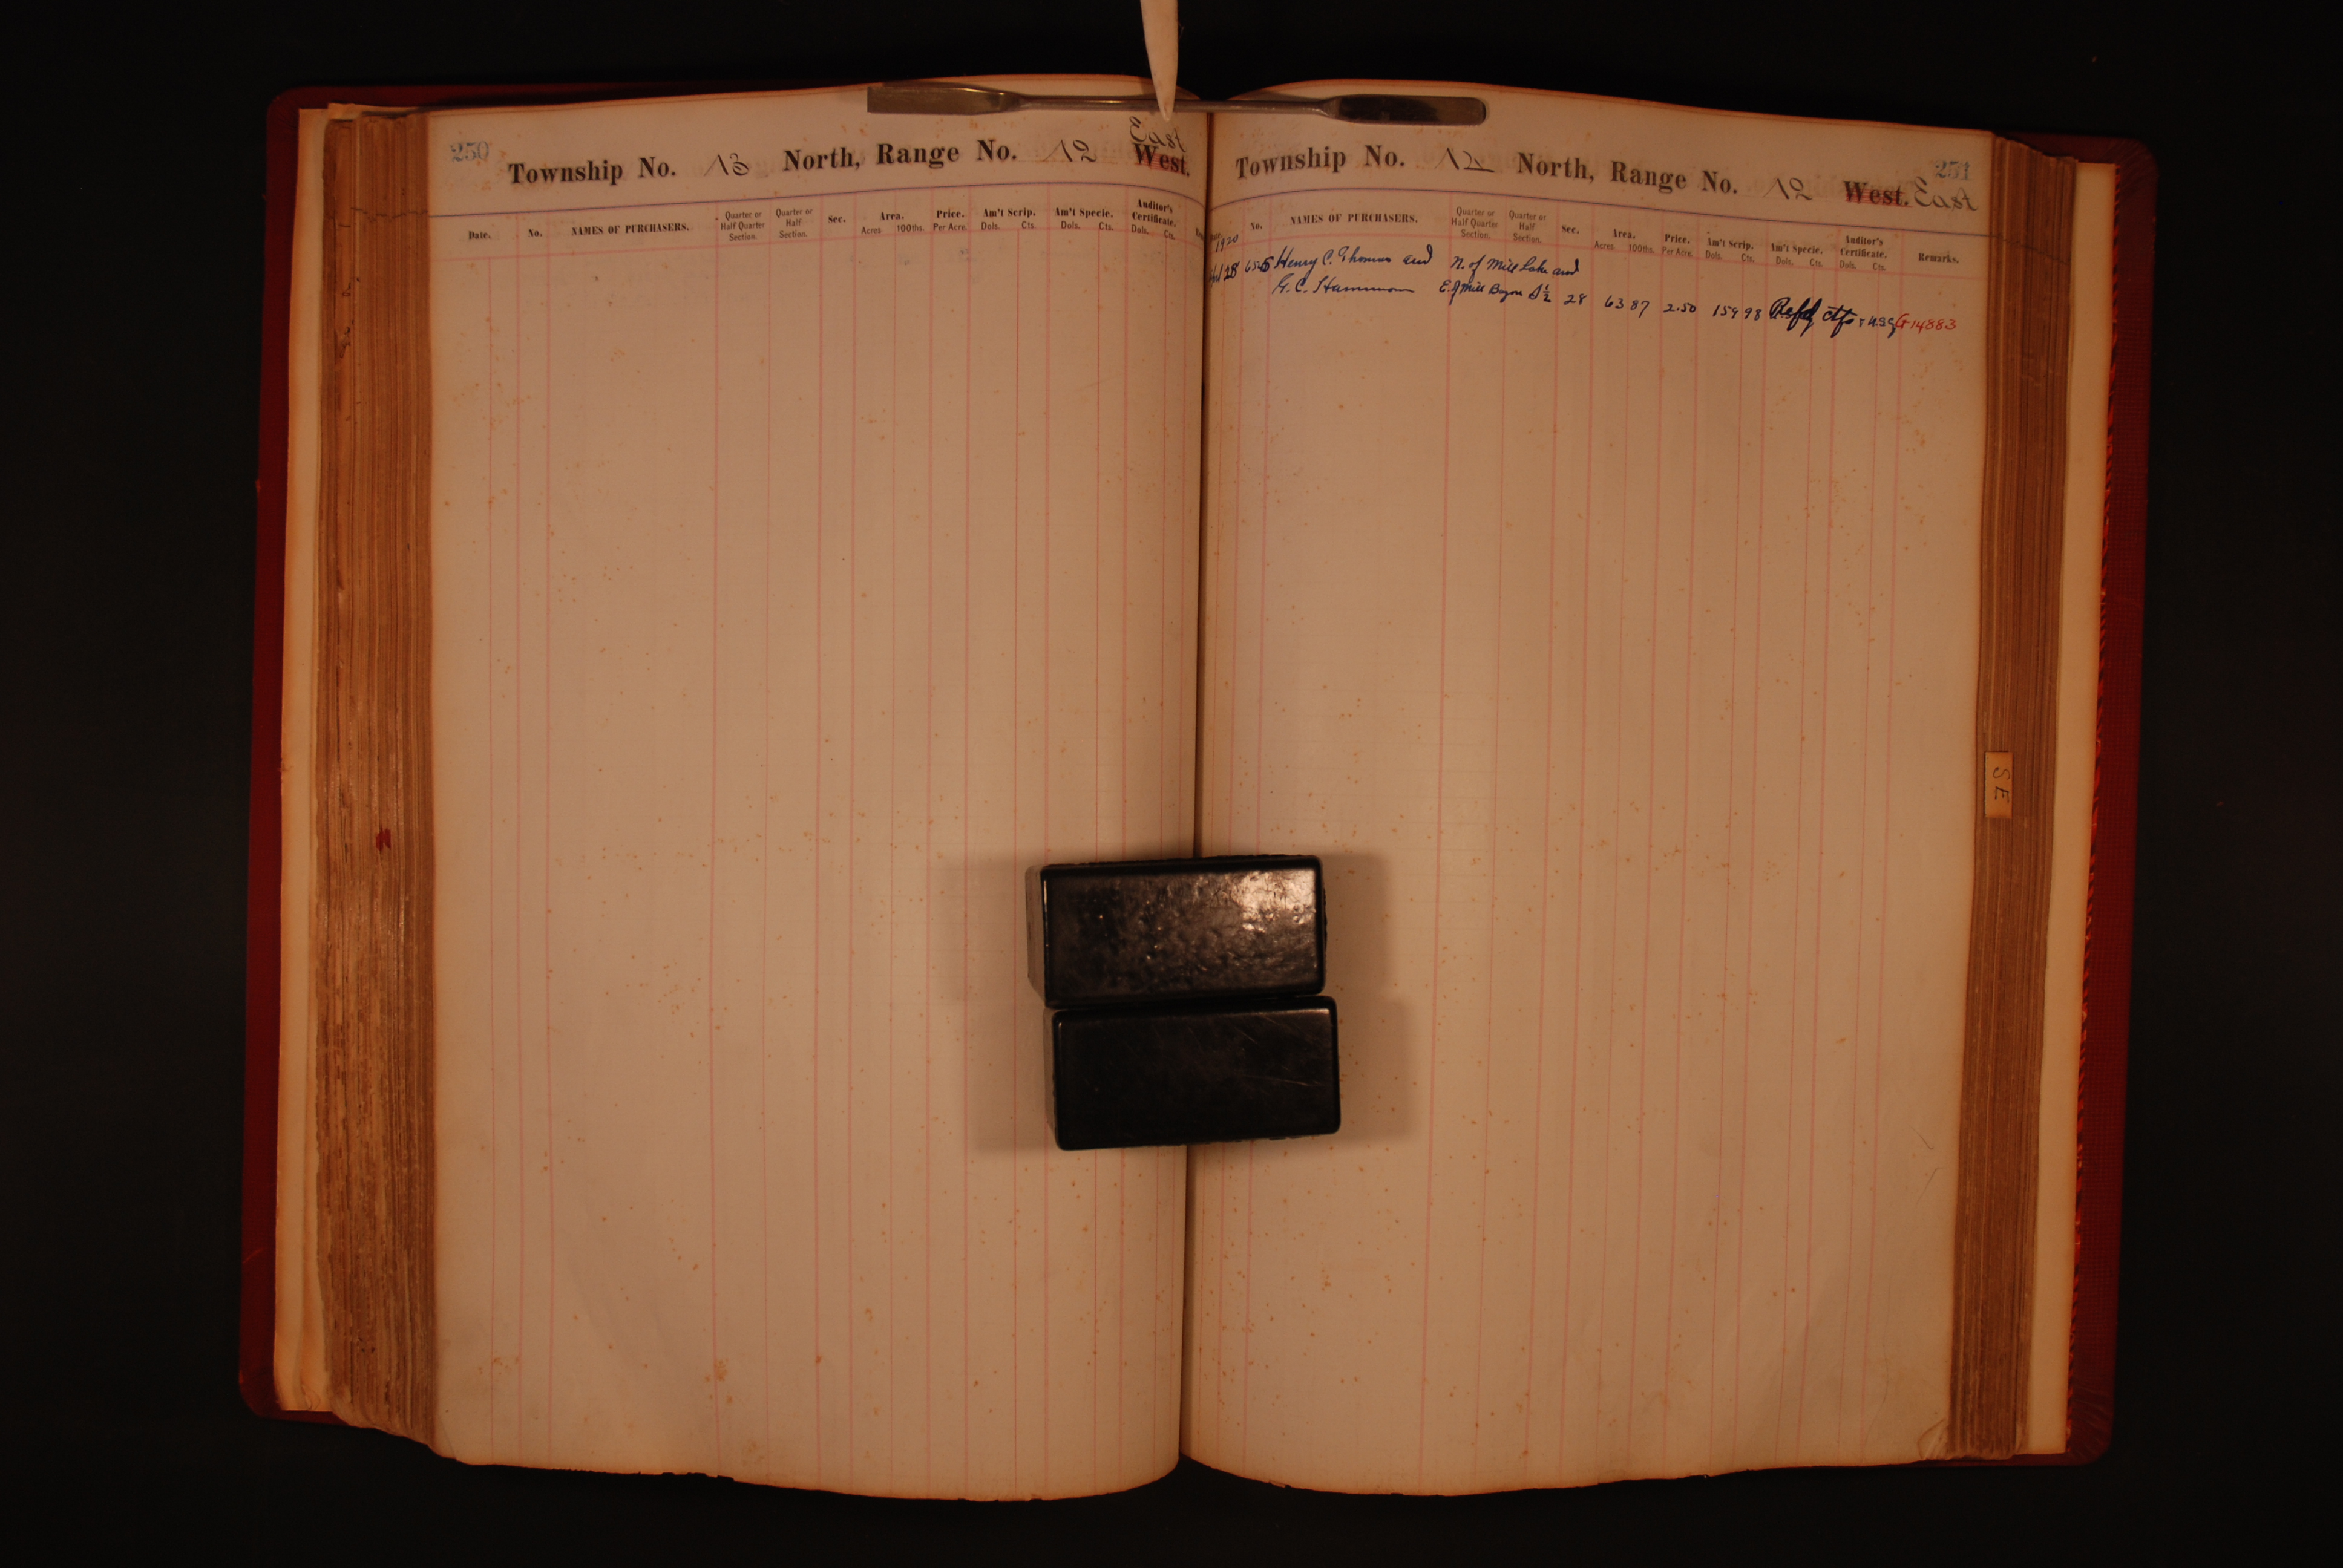 250
East
Township No. 13 North, Range No. 12 West.
Date. No. NAMES OF PURCHASERS. Quarter or Half Quarter Section. Quarter or Half Section. Sec. Area. Acres 100ths. Price. Per Acre. Am't Scrip. Dols. Cts. Am't Specie. Dols. Cts. Auditor's Certificate. Dols. Cts.
251
Township No. 12 North, Range No. 12 West. East
No. NAMES OF PURCHASERS. Quarter or Half Quarter Section. Quarter or Half Section. Sec. Area. Acres 100ths. Price. Per Acre. Am't Scrip. Dols. Cts. Am't Specie. Dols. Cts. Auditor's Certificate. Dols. Cts. Remarks.
1920
28 Henry C. Thomas and N. of Mill Lake and
G. C. E. of Mill Bayou S½ 28 63 87 2.50 159 98 G14883
S E